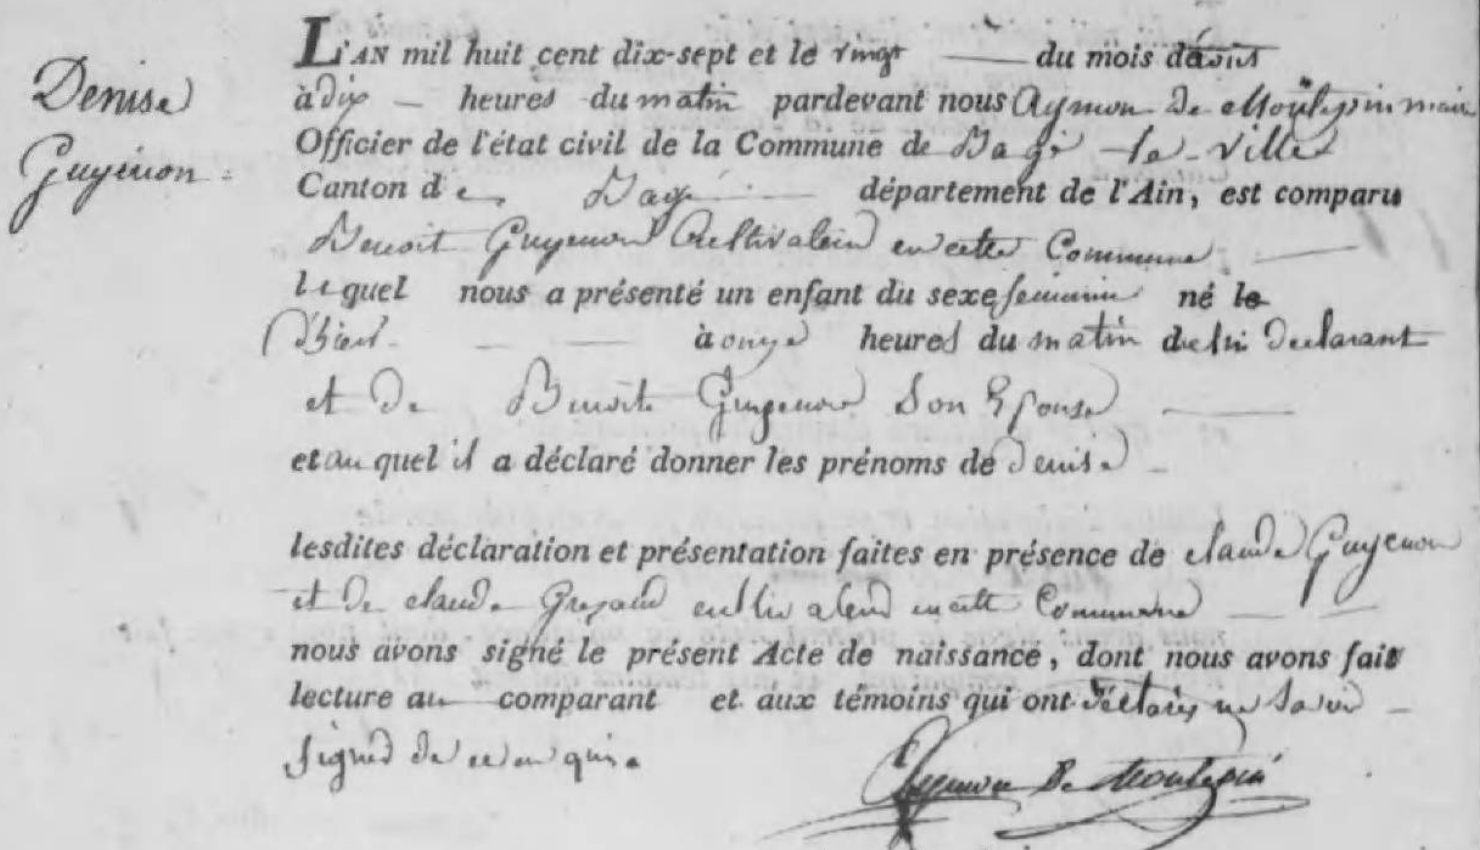 Denise
Guyenon
L'AN mil huit cent dix-sept et le vingt du mois d'août
à dix heures du matin pardevant nous Aymon De Montepin maire
Officier de l'état civil de la Commune de Bagé-la-Ville
Canton de Bagé département de l'Ain, est comparu
Benoit Guyenon Cultivateur en cette Commune
lequel nous a présenté un enfant du sexe feminin né le
D'hier à onze heures du matin de lui declarant
et de Benoite Guyenon Son Epouse
et au quel il a déclaré donner les prénoms de denise
lesdites déclaration et présentation faites en présence de claude Guyenon
et de claude cultivateurs en cette Commune
nous avons signé le présent Acte de naissance, dont nous avons fait
lecture au comparant et aux témoins qui ont déclarés ne Savoir
signer de ce enquis.
Aymon De Montepin